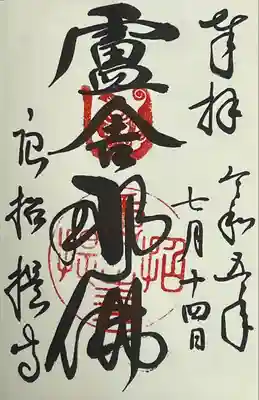 奉拝
令和五年
七月十四日
盧舎那佛
唐招提寺